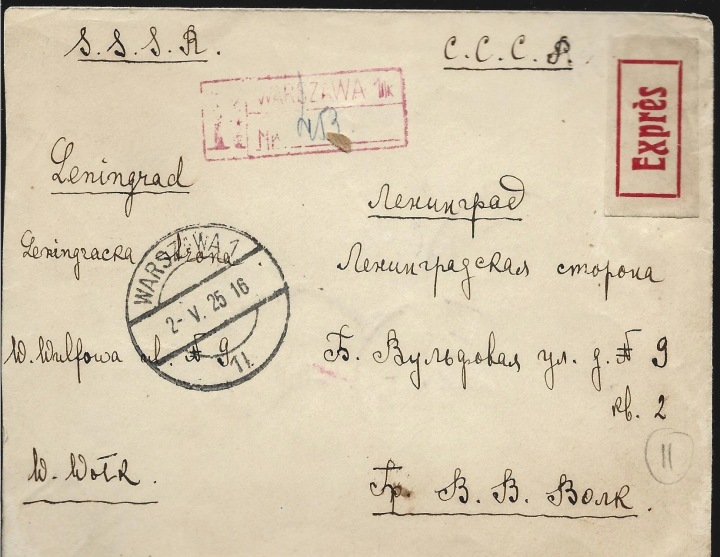 S.S.S.R.
С.С.С.Р.
WARSZAWA 1
Nr. 413
Exprès
Leningrad
Ленинград
Leningracka strona
Ленинградская сторона
WARSZAWA 1
2-V.25 16
W. Wulfowa ul. № 9
Б. Вульфовая ул. д. № 9
кв. 2
11
W. Wołk.
Гр. В. В. Волк.